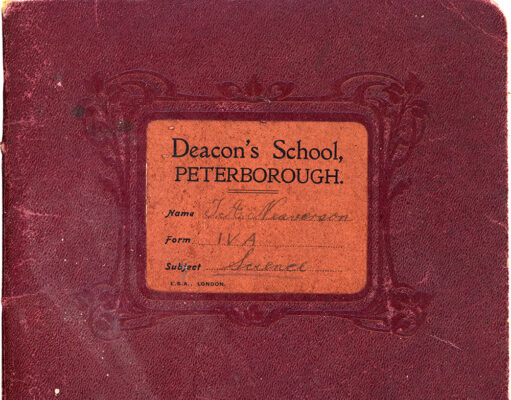 Deacon's School,
PETERBOROUGH.
Name T. H. Neaverson
Form IV A
Subject Science
E.S.A., LONDON.